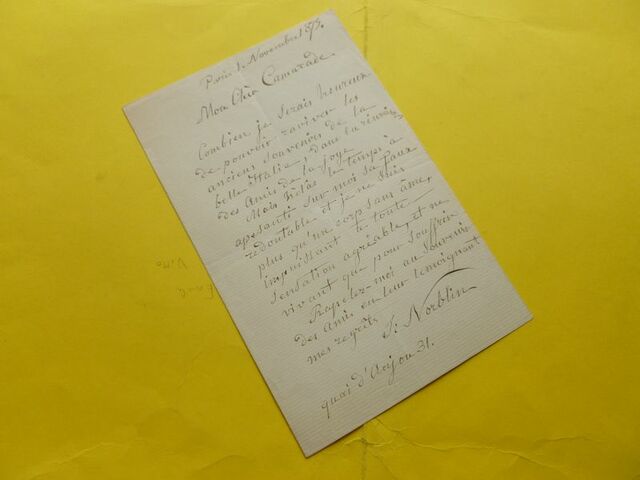 Paris 1. Novembre 1875.
Mon Cher Camarade
Combien je serais heureux
de pouvoir raviver les
anciens souvenirs de la
belle Italie, dans la réunion
des Amis de la joye
Mais hélas le temps à
apesenti sur moi sa faux
redoutable et je ne suis
plus qu'un corp sans âme,
impuissant to toute
sensation agréable, et ne
vivant que pour souffrir
Rapelez-moi au souvenir
des Amis en leur témoignant
mes regrets
S: Norblin
quai d'Anjou 31.